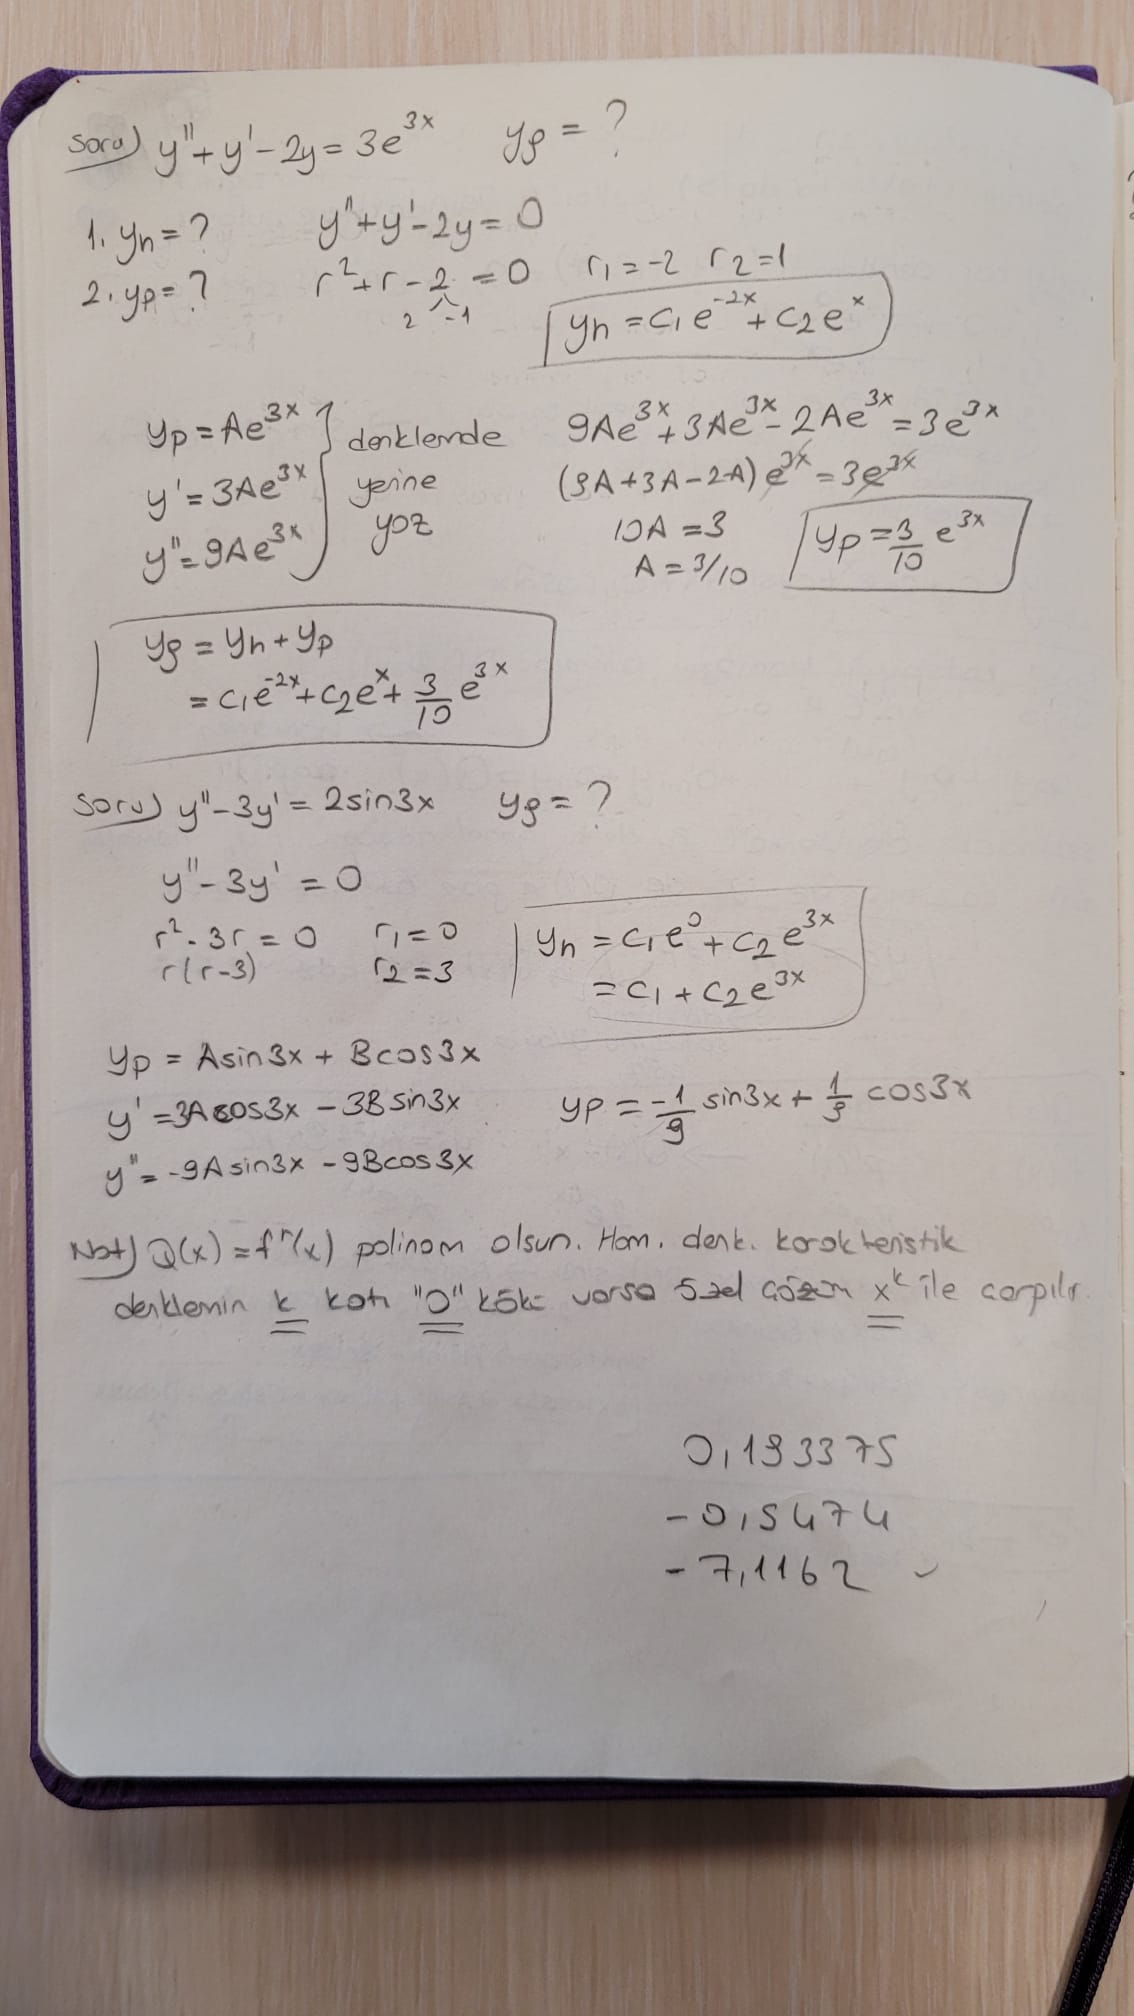 Soru) y''+y'-2y=3e^3x yg=?
1. yh=? y''+y'-2y=0
2. yp=? r²+r-2=0 r1=-2 r2=1
2 -1
yh=c1e^-2x+c2e^x
yp=Ae^3x
y'=3Ae^3x
y''=9Ae^3x
denklemde
yerine
yaz
9Ae^3x+3Ae^3x-2Ae^3x=3e^3x
(9A+3A-2A)e^3x=3e^3x
10A=3
A=3/10
yp=3/10 e^3x
yg=yh+yp
=c1e^-2x+c2e^x+3/10 e^3x
Soru) y''-3y'=2sin3x yg=?
y''-3y'=0
r²-3r=0 r1=0
r(r-3) r2=3
yh=c1e^0+c2e^3x
=c1+c2e^3x
yp=Asin3x+Bcos3x
y'=3Acos3x-3Bsin3x
y''=-9Asin3x-9Bcos3x
yp=-1/9 sin3x+1/9 cos3x
Not) Q(x)=f^n(x) polinom olsun. Hom. denk. karakteristik
denklemin k katı "0" kökü varsa özel çözüm x^k ile çarpılır.
0,193375
-0,5474
-7,1162